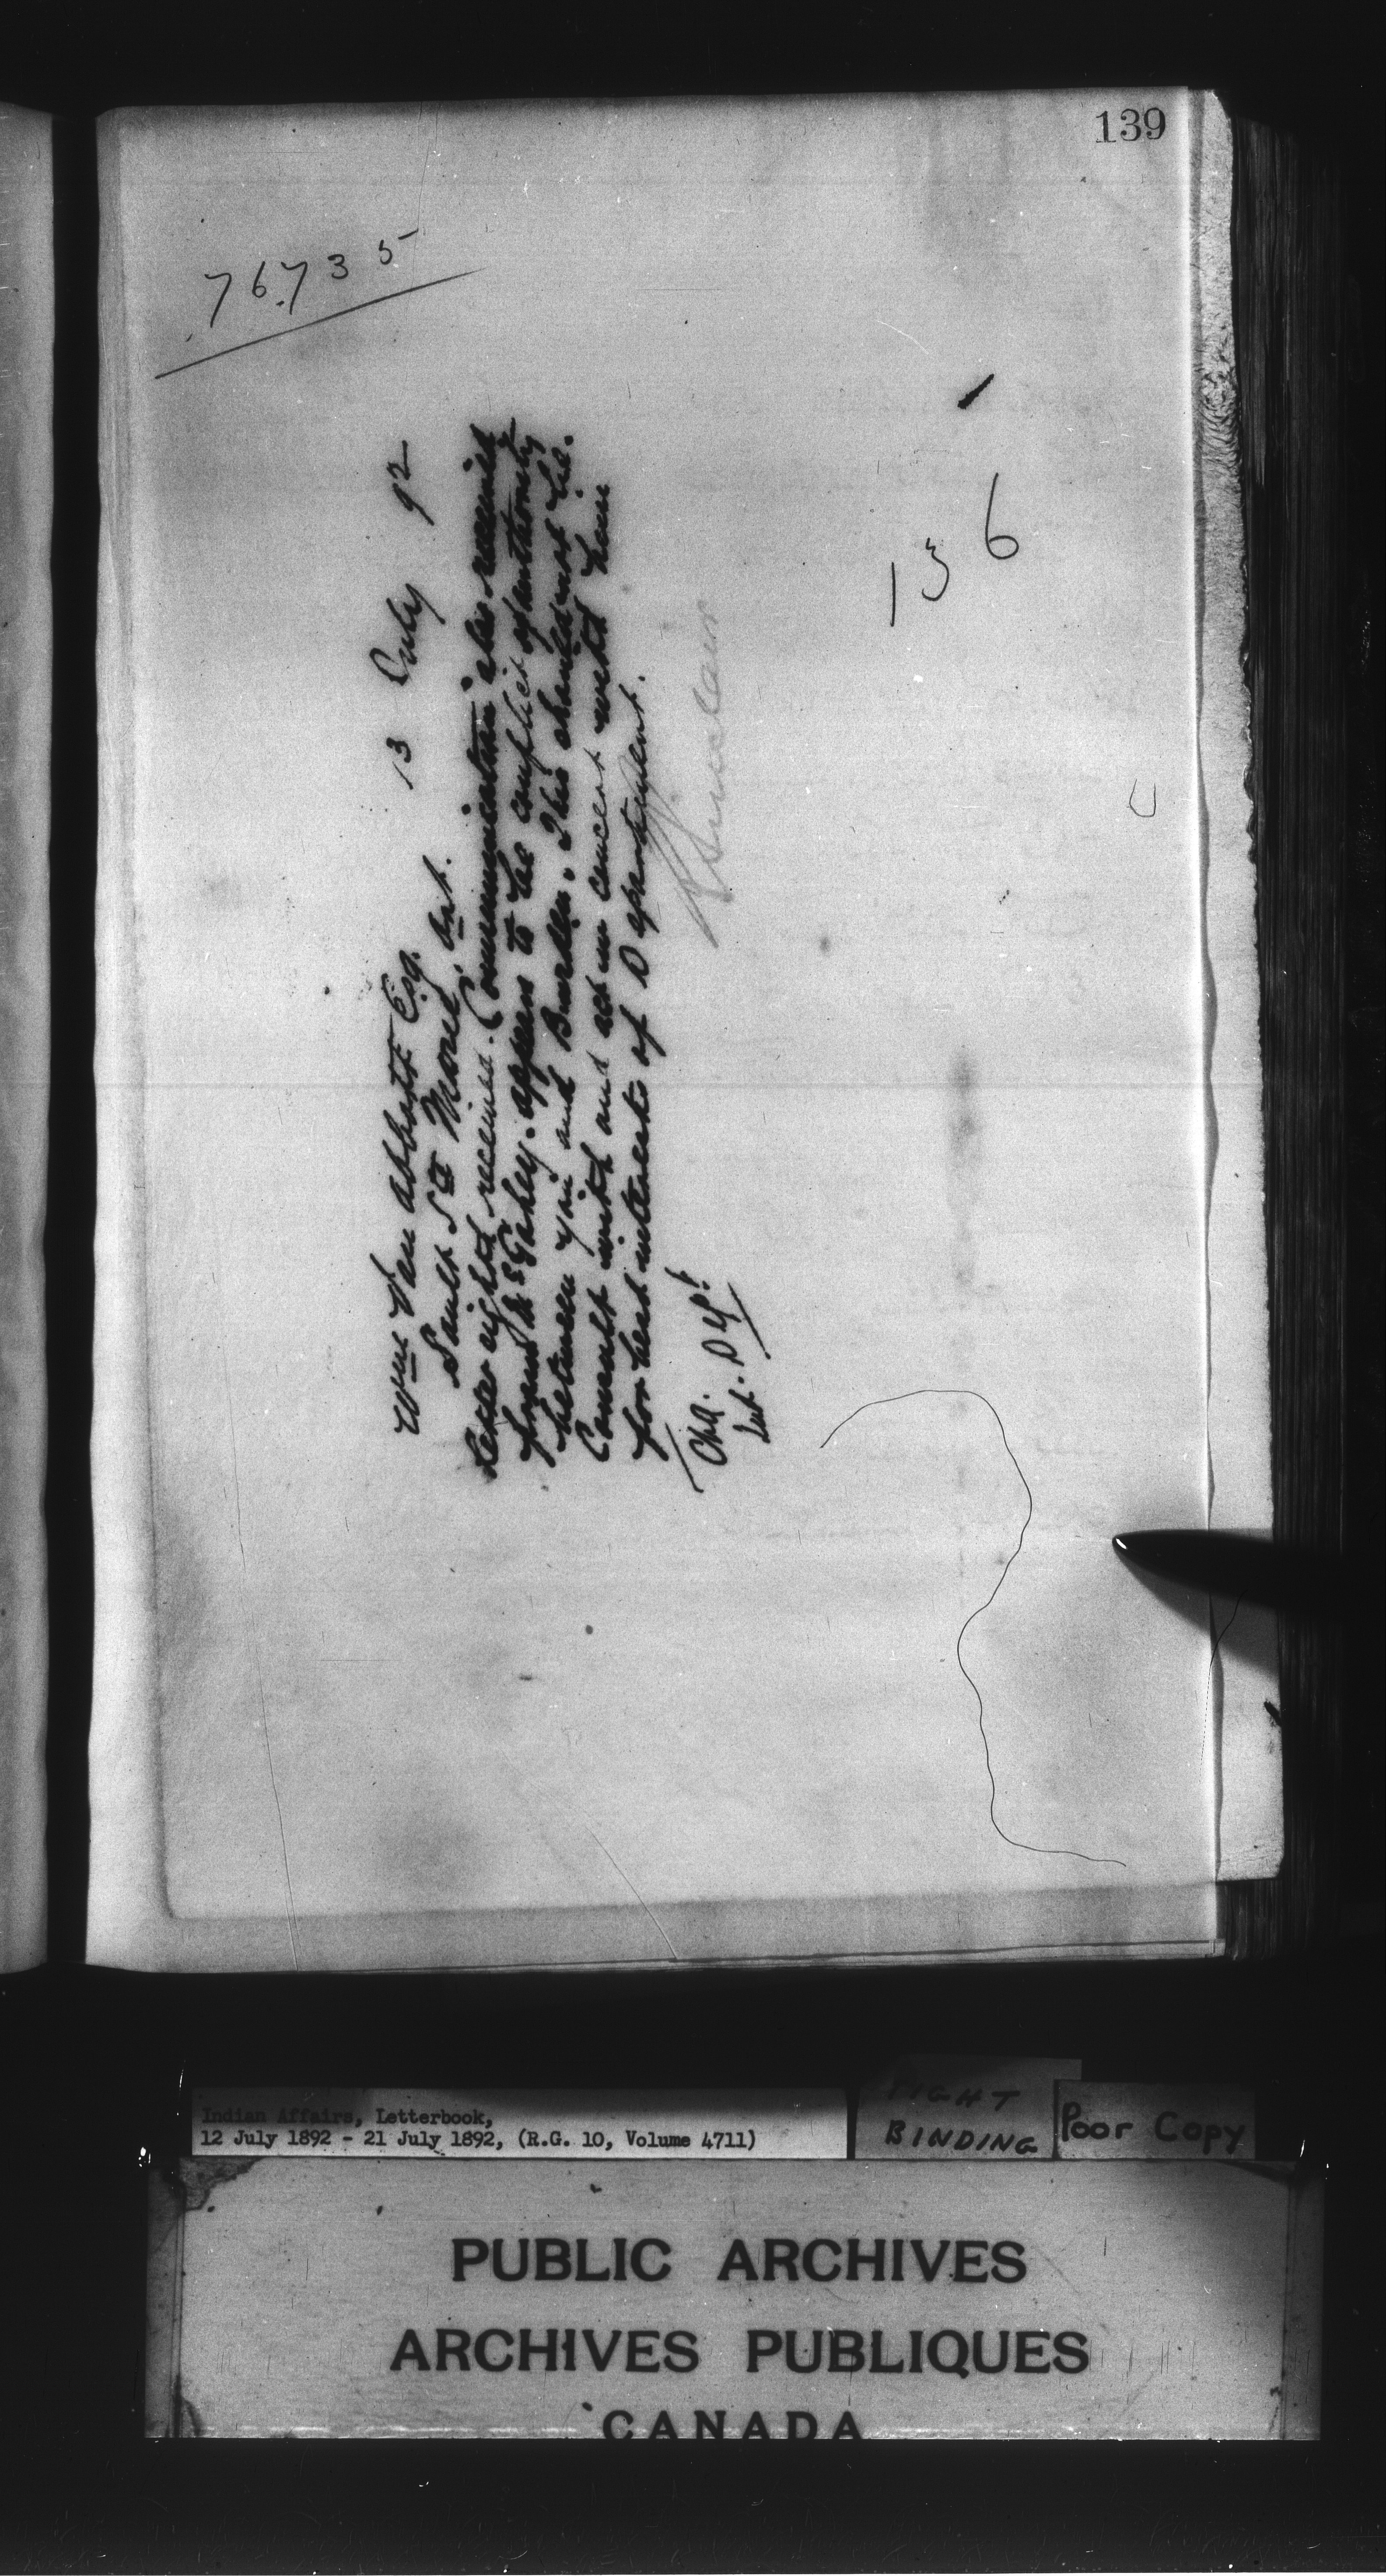 139
76735
13 July 92
Wm Van Abbott Esq.
Sault Ste Marie, Ont.
Letter eighth received. Communication also received
from McGahey. appears to be conflict of authority
between you and Burden. This should not be.
Consult with and act in concert with him
for best interests of Department.
R Sinclair
Chg.
Ind. Dept
136
Indian Affairs, Letterbook,
12 July 1892 - 21 July 1892, (R.G. 10, Volume 4711)
TIGHT
BINDING
Poor Copy
PUBLIC ARCHIVES
ARCHIVES PUBLIQUES
CANADA